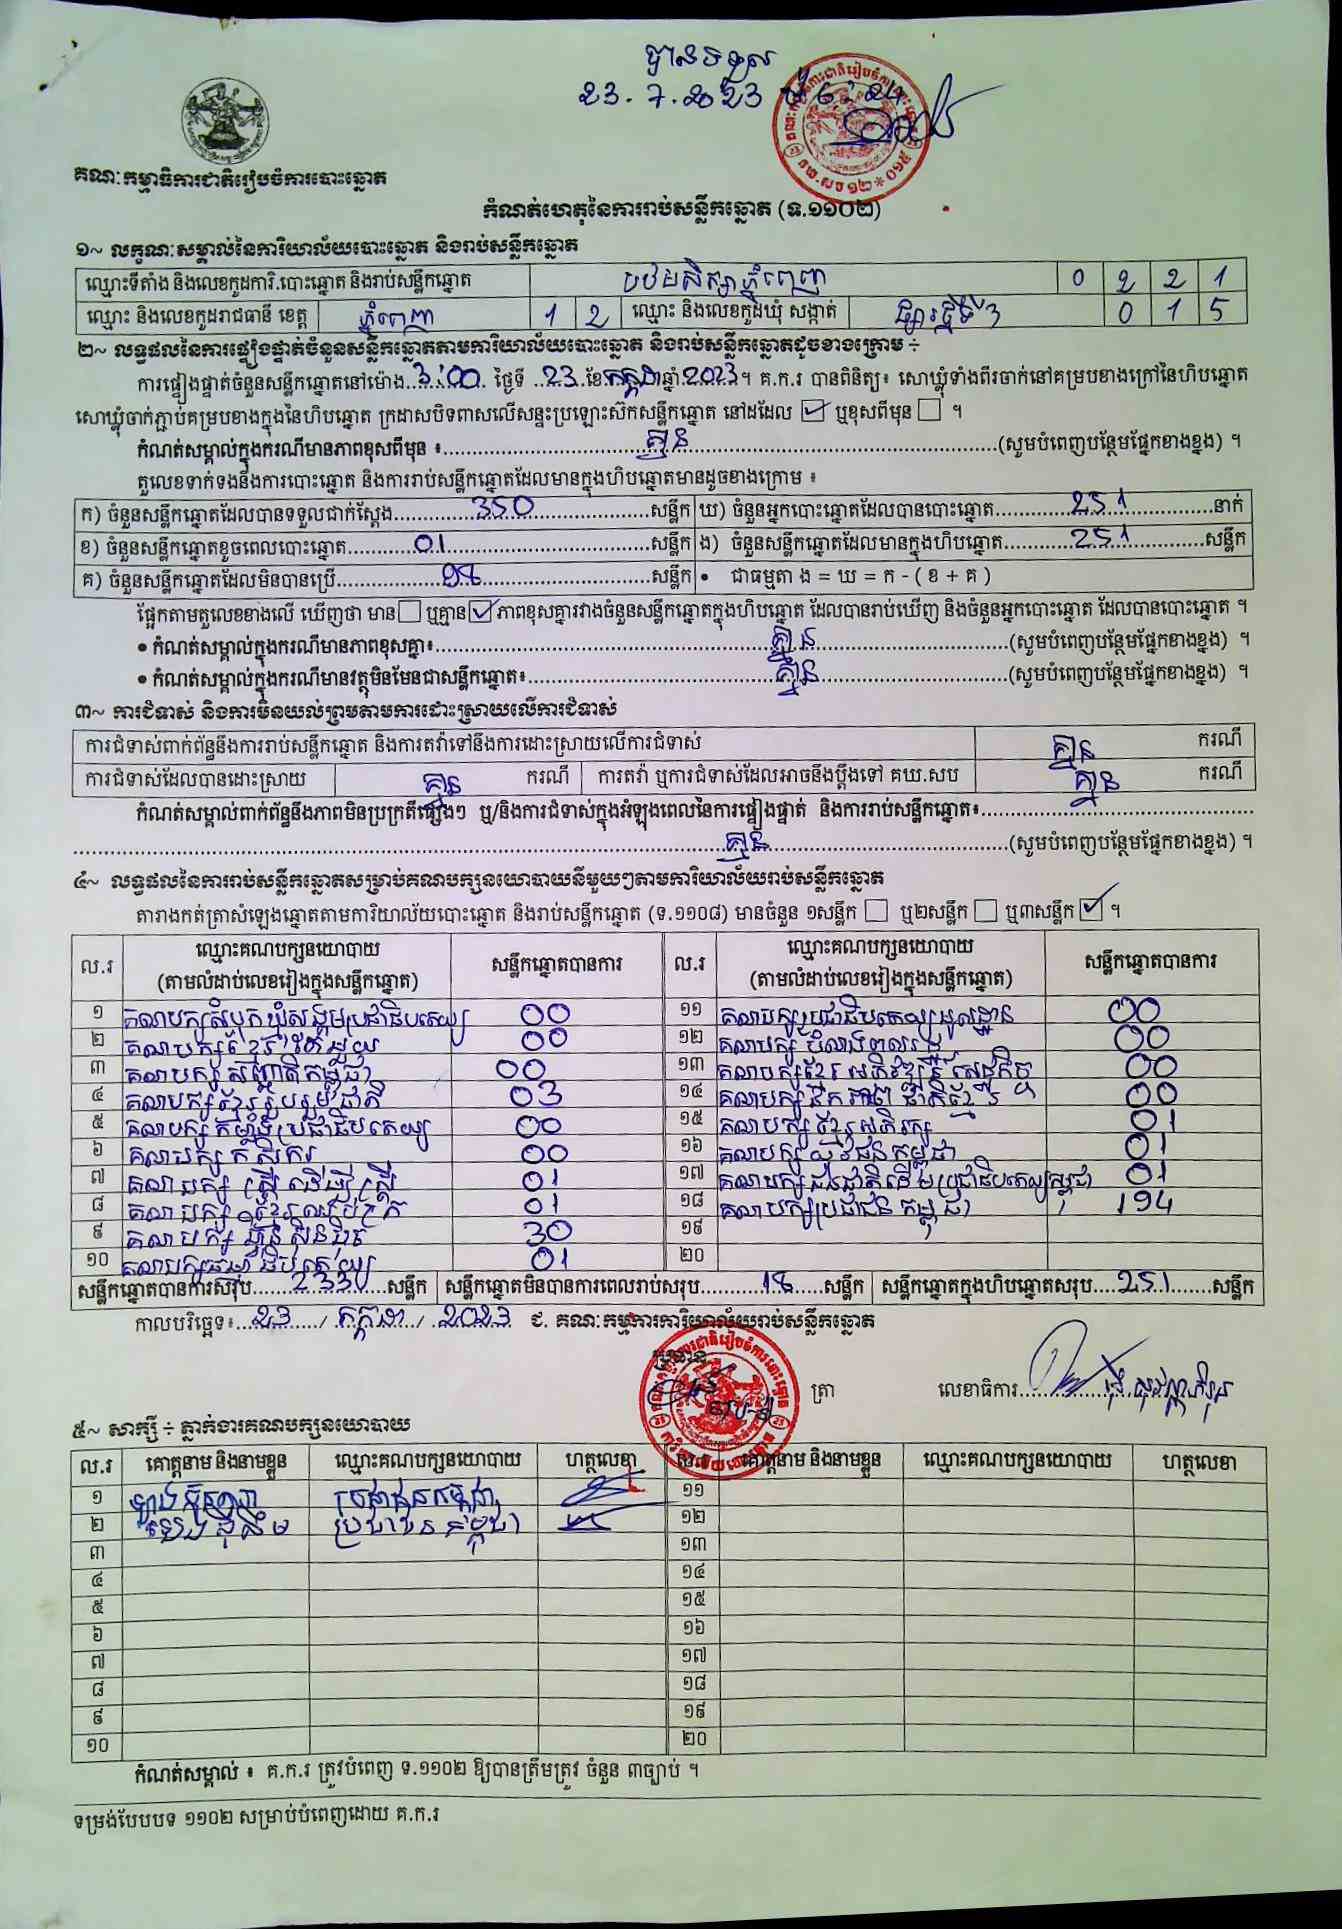 បានទទួល
23.7.2023
គណៈកម្មាធិការជាតិរៀបចំការបោះឆ្នោត
កំណត់ហេតុនៃការរាប់សន្លឹកឆ្នោត (ទ.១១០២)
១~ លក្ខណៈសម្គាល់នៃការិយាល័យបោះឆ្នោត និងរាប់សន្លឹកឆ្នោត
ឈ្មោះទីតាំង និងលេខកូដការិ.បោះឆ្នោត និងរាប់សន្លឹកឆ្នោត បឋមសិក្សាភ្នំពេញ 0 2 2 1
ឈ្មោះ និងលេខកូដរាជធានី ខេត្ត ភ្នំពេញ 1 2 ឈ្មោះ និងលេខកូដឃុំ សង្កាត់ ផ្សារថ្មីទី3 0 1 5
២~ លទ្ធផលនៃការផ្ទៀងផ្ទាត់ចំនួនសន្លឹកឆ្នោតតាមការិយាល័យបោះឆ្នោត និងរាប់សន្លឹកឆ្នោតដូចខាងក្រោម ÷
ការផ្ទៀងផ្ទាត់ចំនួនសន្លឹកឆ្នោតនៅម៉ោង 3:00 ថ្ងៃទី 23 ខែ កក្កដា ឆ្នាំ 2023 ។ គ.ក.រ បានពិនិត្យ៖ សោឃ្លុំទាំងពីរចាក់នៅគម្របខាងក្រៅនៃហិបឆ្នោត
សោឃ្លុំចាក់ភ្ជាប់គម្របខាងក្នុងនៃហិបឆ្នោត ក្រដាសបិទពាសលើសន្ទះប្រឡោះស៊កសន្លឹកឆ្នោត នៅដដែល ☑ ឬខុសពីមុន ☐ ។
កំណត់សម្គាល់ក្នុងករណីមានភាពខុសពីមុន ៖ គ្មាន (សូមបំពេញបន្ថែមផ្នែកខាងខ្នង) ។
តួលេខទាក់ទងនឹងការបោះឆ្នោត និងការរាប់សន្លឹកឆ្នោតដែលមានក្នុងហិបឆ្នោតមានដូចខាងក្រោម ៖
ក) ចំនួនសន្លឹកឆ្នោតដែលបានទទួលជាក់ស្តែង 350 សន្លឹក ឃ) ចំនួនអ្នកបោះឆ្នោតដែលបានបោះឆ្នោត 251 នាក់
ខ) ចំនួនសន្លឹកឆ្នោតខូចពេលបោះឆ្នោត 01 សន្លឹក ង) ចំនួនសន្លឹកឆ្នោតដែលមានក្នុងហិបឆ្នោត 251 សន្លឹក
គ) ចំនួនសន្លឹកឆ្នោតដែលមិនបានប្រើ 98 សន្លឹក • ជាធម្មតា ង = ឃ = ក - ( ខ + គ )
ផ្អែកតាមតួលេខខាងលើ ឃើញថា មាន ☐ ឬគ្មាន ☑ ភាពខុសគ្នារវាងចំនួនសន្លឹកឆ្នោតក្នុងហិបឆ្នោត ដែលបានរាប់ឃើញ និងចំនួនអ្នកបោះឆ្នោត ដែលបានបោះឆ្នោត ។
• កំណត់សម្គាល់ក្នុងករណីមានភាពខុសគ្នា៖ គ្មាន (សូមបំពេញបន្ថែមផ្នែកខាងខ្នង) ។
• កំណត់សម្គាល់ក្នុងករណីមានវត្ថុមិនមែនជាសន្លឹកឆ្នោត៖ គ្មាន (សូមបំពេញបន្ថែមផ្នែកខាងខ្នង) ។
៣~ ការជំទាស់ និងការមិនយល់ព្រមតាមការដោះស្រាយលើការជំទាស់
ការជំទាស់ពាក់ព័ន្ធនឹងការរាប់សន្លឹកឆ្នោត និងការតវ៉ាទៅនឹងការដោះស្រាយលើការជំទាស់ គ្មាន ករណី
ការជំទាស់ដែលបានដោះស្រាយ គ្មាន ករណី ការតវ៉ា ឬការជំទាស់ដែលអាចនឹងប្តឹងទៅ គឃ.សប គ្មាន ករណី
កំណត់សម្គាល់ពាក់ព័ន្ធនឹងភាពមិនប្រក្រតីផ្សេងៗ ឬ/និងការជំទាស់ក្នុងអំឡុងពេលនៃការផ្ទៀងផ្ទាត់ និងការរាប់សន្លឹកឆ្នោត៖
គ្មាន (សូមបំពេញបន្ថែមផ្នែកខាងខ្នង) ។
៤~ លទ្ធផលនៃការរាប់សន្លឹកឆ្នោតសម្រាប់គណបក្សនយោបាយនីមួយៗតាមការិយាល័យរាប់សន្លឹកឆ្នោត
តារាងកត់ត្រាសំឡេងឆ្នោតតាមការិយាល័យបោះឆ្នោត និងរាប់សន្លឹកឆ្នោត (ទ.១១០៨) មានចំនួន ១សន្លឹក ☐ ឬ២សន្លឹក ☐ ឬ៣សន្លឹក ☑ ។
ល.រ ឈ្មោះគណបក្សនយោបាយ (តាមលំដាប់លេខរៀងក្នុងសន្លឹកឆ្នោត) សន្លឹកឆ្នោតបានការ ល.រ ឈ្មោះគណបក្សនយោបាយ (តាមលំដាប់លេខរៀងក្នុងសន្លឹកឆ្នោត) សន្លឹកឆ្នោតបានការ
១ គណបក្សសំបុកឃ្មុំសង្គមប្រជាធិបតេយ្យ 00 ១១ គណបក្សប្រជាធិបតេយ្យមូលដ្ឋាន 00
២ គណបក្សខ្មែរតែមួយ 00 ១២ គណបក្ស បំលាស់ពលរដ្ឋ 00
៣ គណបក្ស សញ្ជាតិកម្ពុជា 00 ១៣ គណបក្សខ្មែរអភិវឌ្ឍន៍សេដ្ឋកិច្ច 00
៤ គណបក្សខ្មែររួបរួមជាតិ 03 ១៤ គណបក្សឯកភាពជាតិខ្មែរ 00
៥ គណបក្ស កម្លាំងប្រជាធិបតេយ្យ 00 ១៥ គណបក្សខ្មែរអភិរក្ស 01
៦ គណបក្ស កសិករ 00 ១៦ គណបក្ស យុវជនកម្ពុជា 01
៧ គណបក្ស ស្ត្រីដើម្បីស្ត្រី 01 ១៧ គណបក្សជនជាតិដើមប្រជាធិបតេយ្យកម្ពុជា 01
៨ គណបក្ស ខ្មែរឈប់ក្រ 01 ១៨ គណបក្សប្រជាជនកម្ពុជា 194
៩ គណបក្ស ហ៊្វុនស៊ិនប៉ិច 30 ១៩
១០ គណបក្សធម្មាធិបតេយ្យ 01 ២០
សន្លឹកឆ្នោតបានការសរុប 233 សន្លឹក សន្លឹកឆ្នោតមិនបានការពេលរាប់សរុប 18 សន្លឹក សន្លឹកឆ្នោតក្នុងហិបឆ្នោតសរុប 251 សន្លឹក
កាលបរិច្ឆេទ៖ 23 / កក្កដា / 2023 ជ. គណៈកម្មការការិយាល័យរាប់សន្លឹកឆ្នោត
ប្រធាន ត្រា លេខាធិការ
៥~ សាក្សី ÷ ភ្នាក់ងារគណបក្សនយោបាយ
ល.រ គោត្តនាម និងនាមខ្លួន ឈ្មោះគណបក្សនយោបាយ ហត្ថលេខា ល.រ គោត្តនាម និងនាមខ្លួន ឈ្មោះគណបក្សនយោបាយ ហត្ថលេខា
១ ប្រជាជនកម្ពុជា ១១
២ ប្រជាជនកម្ពុជា ១២
៣ ១៣
៤ ១៤
៥ ១៥
៦ ១៦
៧ ១៧
៨ ១៨
៩ ១៩
១០ ២០
កំណត់សម្គាល់ ៖ គ.ក.រ ត្រូវបំពេញ ទ.១១០២ ឱ្យបានត្រឹមត្រូវ ចំនួន ៣ច្បាប់ ។
ទម្រង់បែបបទ ១១០២ សម្រាប់បំពេញដោយ គ.ក.រ